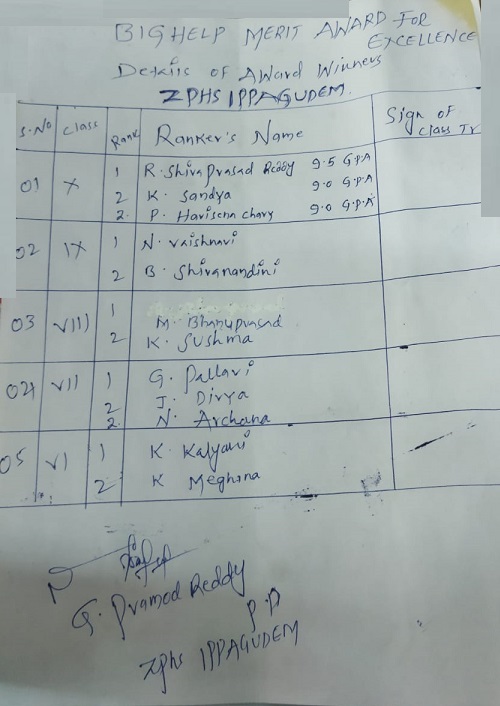 BIGHELP MERIT AWARD FOR EXCELLENCE
Details of Award Winners
ZPHS IPPAGUDEM.
S.No Class Rank Ranker's Name Sign of Class Tr
01 X 1 R. Shiva prasad Reddy 9.5 G.P.A
2 K. Sandya 9.0 G.P.A
2. P. Harisena chary 9.0 G.P.A
02 IX 1 N. Vaishnavi
2 B. Shivanandini
03 VIII 1 M. Bhanuprasad
2 K. Sushma
04 VII 1 G. Pallavi
2 J. Divya
2. N. Archana
05 VI 1 K. Kalyani
2 K Meghana
G. Pramod Reddy
P.D
ZPHS IPPAGUDEM